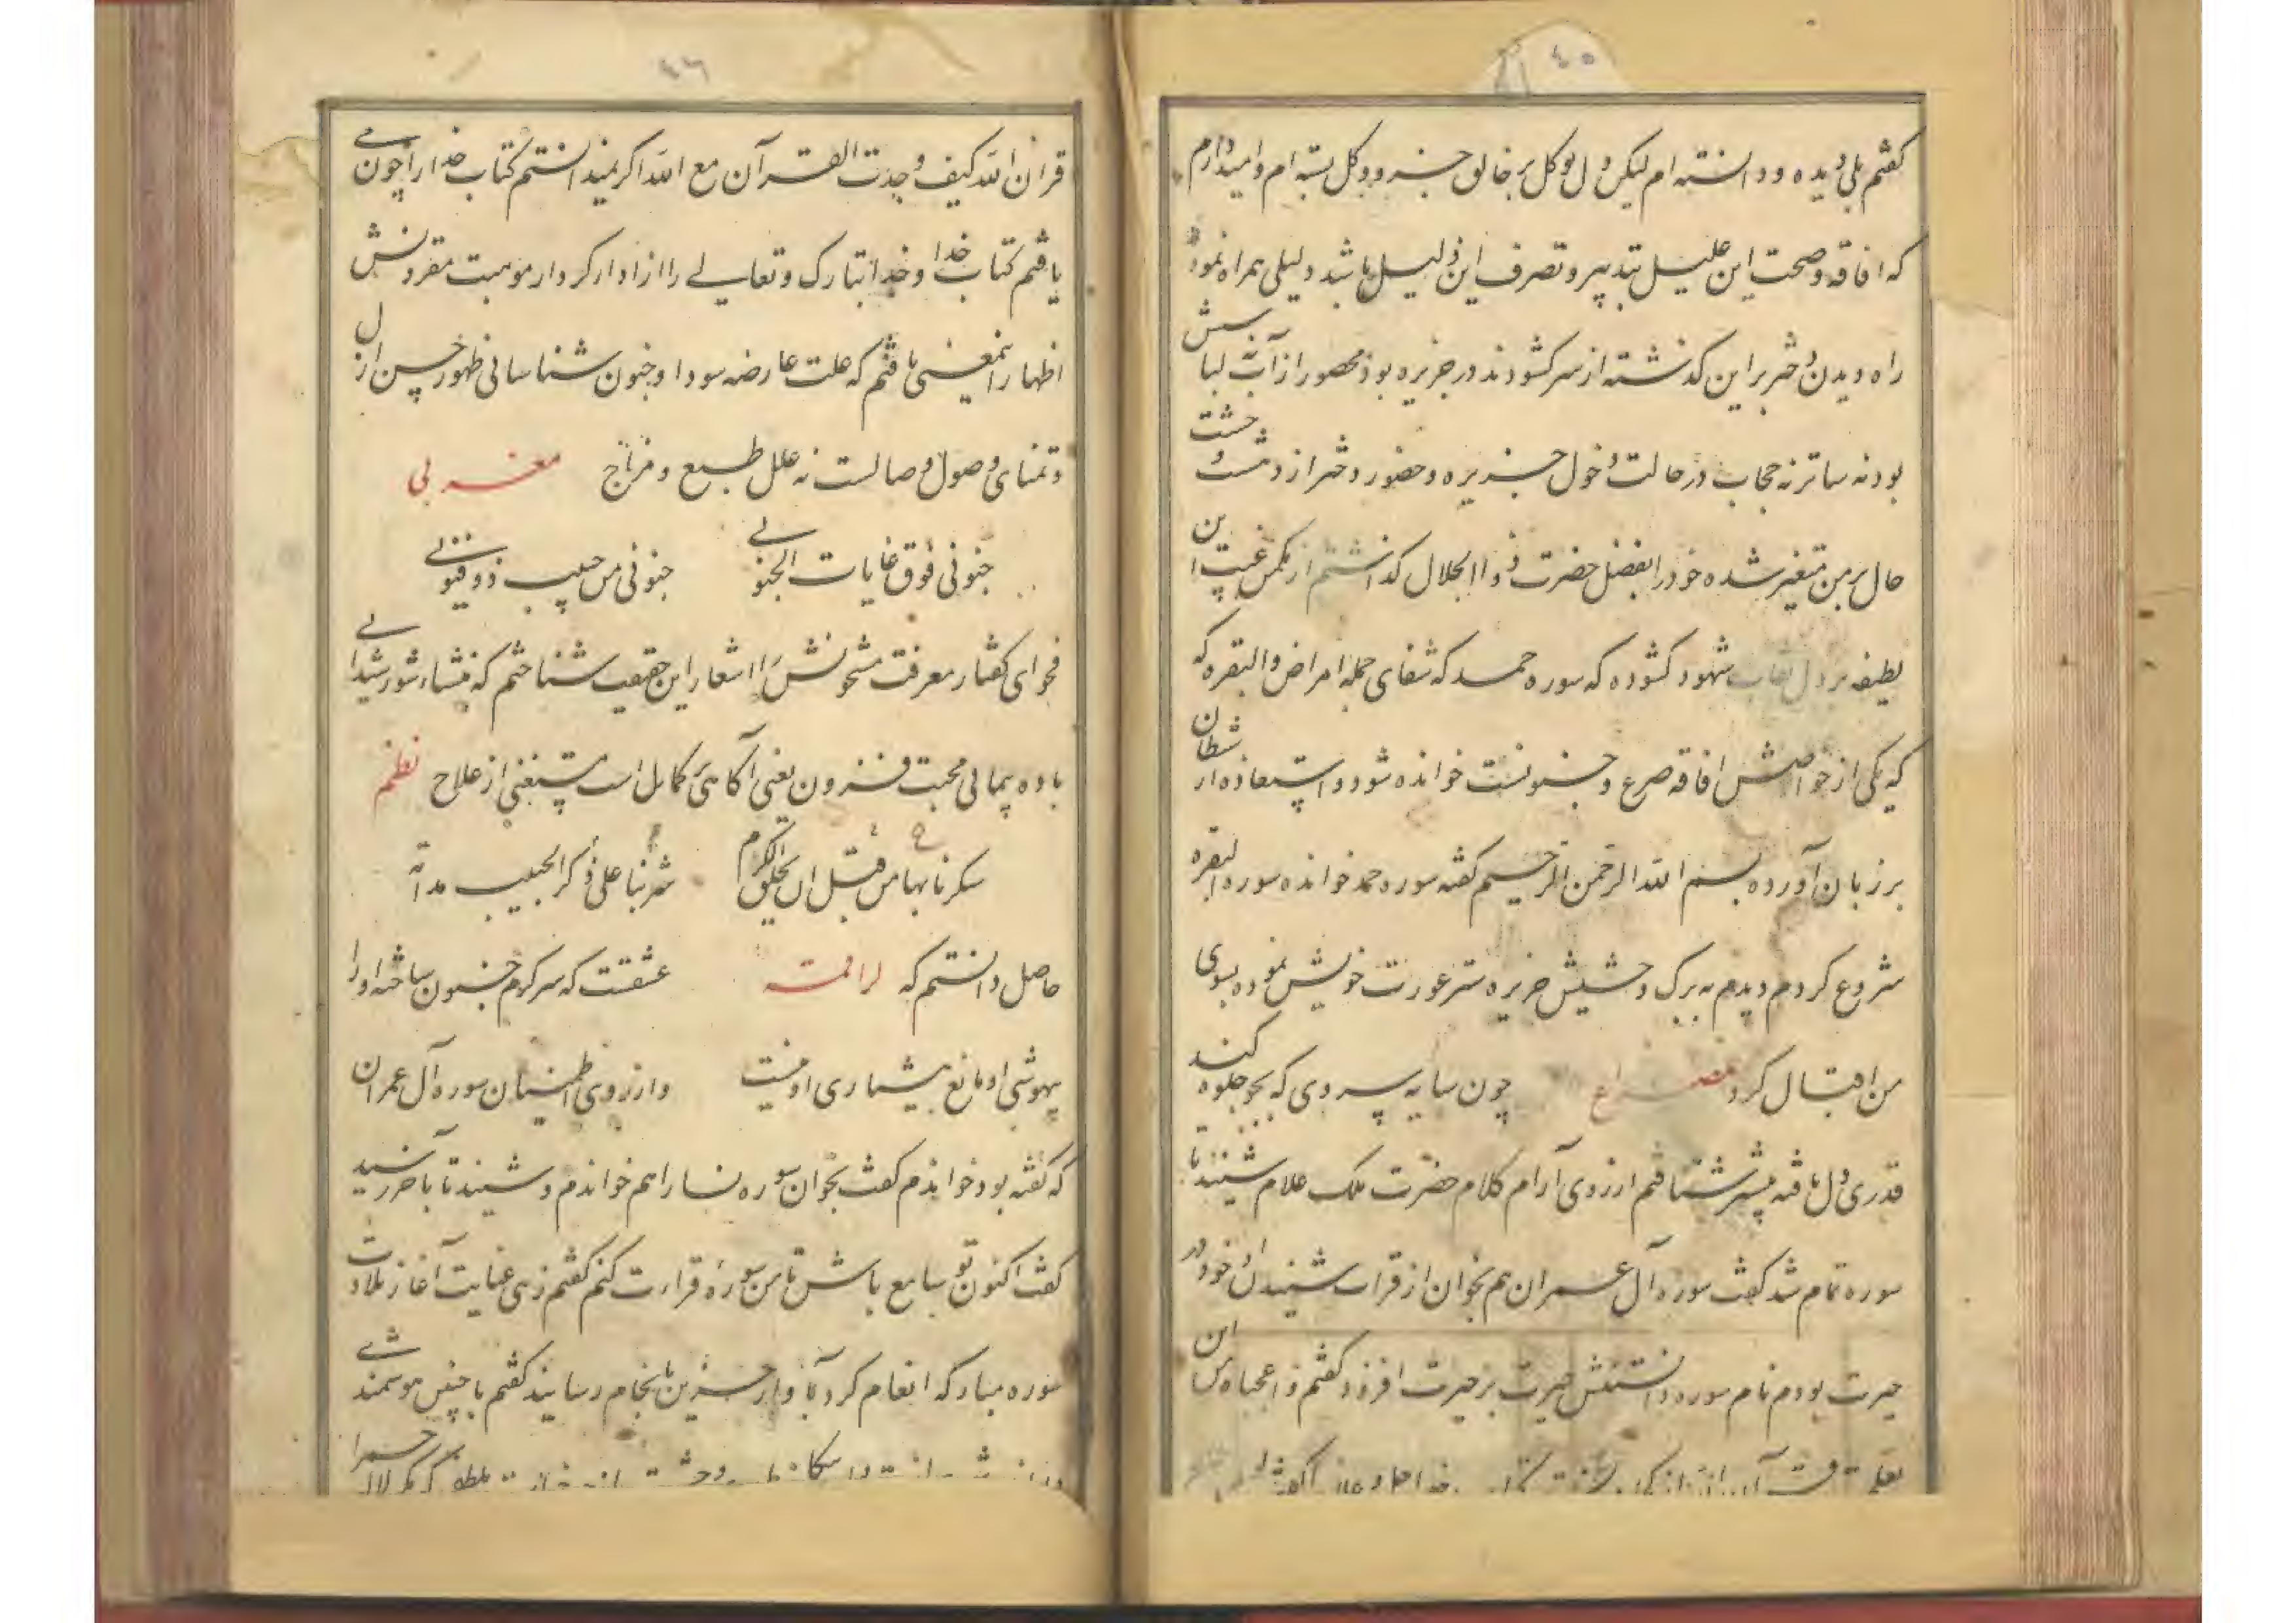 ٤٥
کفتم بلی دیده و دانسته ام لیکن دل توکل بر خالق جزو و کل بسته ام و امید دارم
که افاقه و صحت این علیل بتدبیر و تصرف این ذلیل باشد دلیلی همراه نمود
راه دیدن دختر براین کذشته از سر کشودند در جزیره بود محصور از آب نه لباسش
بود نه ساتر نه حجاب در حالت دخول جزیره و حضور دختر از دهشت و خشت
حال بر من متغیر شده خود را بفضل حضرت ذو الجلال کذاشتم از مکمن غیب این
لطیفه بر دل نقاب شهود کشوده که سوره حمد که شفای جمله امراض و البقره که
که یکی از خواصش افاقه صرع و جنونست خوانده شود و استعاذه از شطان
بر زبان آورده بسم الله الرحمن الرحیم کفته سوره حمد خوانده سوره البقره
شروع کردم دیدم به برک و حشیش جزیره ستر عورت خویش نموده بسوی
من اقبال کرد مصراع چون سایه سروی که بجو جلوه کند
قدری دل یافته پیشتر شتافتم ار زوی آرام کلام حضرت ملک علام شنید تا
سوره تمام شد کفت سوره آل عمران هم بخوان از قرات شنیدن او خود در
حیرت بودم نام سوره دانستنش حیرت بر حیرت افزود کفتم وا عجباه این
٤٦
قران الله کیف وجدت القرآن مع الله اکر نمیدانستم کتاب خدا را چون می
یافتم کتاب خدا و خدا تبارک و تعالی را از ادار کردار موهبت مقرونش
اظهار اینمعنی یافتم که علت عارضه سودا و جنون شناسائی ظهور حسن ازل
و تمنای وصول وصالست نه علل طبع و مزاج مغربی
جنونی فوق غایات الجنونی جنونی من حبیب ذو فنونی
فحوای کفتار معرفت مشحونش را اشعار این حقیقت شناختم که منشاء شور شیدائی
باده پیمائی محبت فزون یعنی آکاهی کامل است مستغنی از علاج نظم
شربنا علی ذکر الحبیب مدامة سکرنا بها من قبل ان یخلق الکرم
حاصل دانستم که لراقمه عشقست که سرکرم جنون ساخته او را
بیهوشی او مانع هشیاری او نیست و ار زوی اطمینان سوره آل عمران
که کفته بود خواندم کفت بخوان سوره نسا را هم خواندم و شنید تا بآخر رسید
کفت اکنون تو سامع باش تا من سوره قراءت کنم کفتم زهی عنایت آغاز تلاوت
سوره مبارکه انعام کرد بآواز حزین بانجام رسانید کفتم با چنین هوشمندی